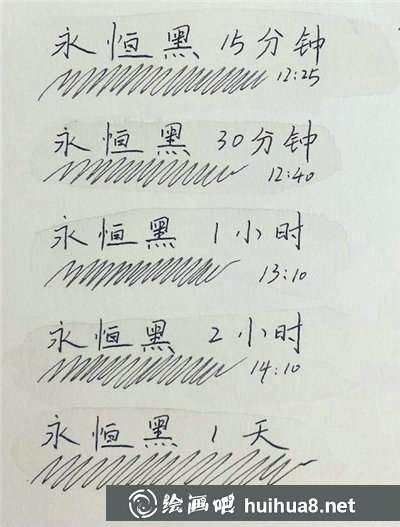 永恒黑 15分钟
12:25
永恒黑 30分钟
12:40
永恒黑 1小时
13:10
永恒黑 2小时
14:10
永恒黑 1天
绘画吧 huihua8.net